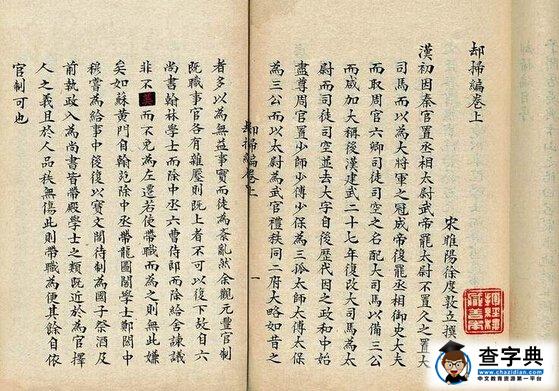 却掃編卷上
宋睢陽徐度敦立撰
漢初因秦官置丞相太尉武帝罷太尉不置久之置大
司馬而以為大將軍之冠成帝復罷丞相御史大夫
而取周官六卿司徒司空之名配大司馬以備三公
而咸加大稱後漢建武二十七年復改大司馬為太
尉而司徒司空並去大字自後歷代因之政和中始
盡遵周官置少師少傅少保為三孤太師太傅太保
為三公而以太尉為武官禮秩同二府大略如昔之
却掃編卷上
一
者多以為無益事實而徒為紊亂然余觀元豐官制
既職事官各有雜壓則既上者不可以復下故自六
尚書翰林學士而除中丞六曹侍郎而除給舍諫議
非不
而不免為左遷若使帶職而為之則無此嫌
矣如蘇黃門自翰苑除中丞帶龍圖閣學士鄭閎中
穆嘗為給事中後復以寶文閣待制為國子祭酒及
前執政入為尚書皆帶殿學士之類既近於為官擇
人之義且於人品秩無傷此則帶職為便其餘自依
官制可也
查字典
www.chazidian.com
中文教育资源第一平台